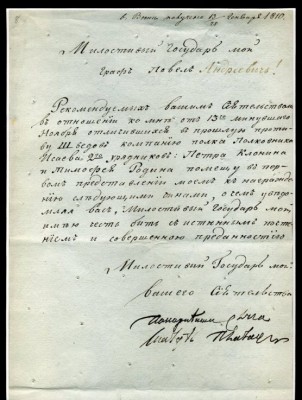 Генваря 1810.
Милостивый Государь мой
Графъ Павелъ Андреевичъ!
Рекомендуемыхъ вашимъ Сіятельствомъ
въ отношеніи ко мнѣ отъ 13го минувшаго
Ноября отличившихся въ прошлую противу
Шведовъ компанію полка Полковника
Исаева 2го урядниковъ: Петра
и Тимофея Родина помещу въ пер-
вомъ представленіи моемъ къ награжде-
нію слѣдующими чинами о чемъ увѣдо-
мляя васъ, Милостивый Государь мой,
имѣю честь быть съ истиннымъ почте-
ніемъ и совершенною преданностію
Милостивый Государь мой
вашего Сіятельства